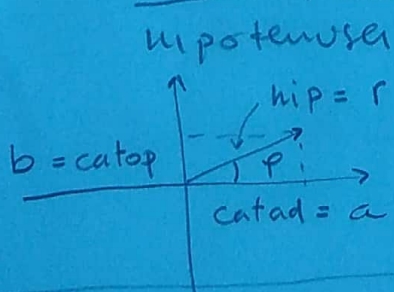 hipotenusa
hip = r
b = catop
φ
catad = a